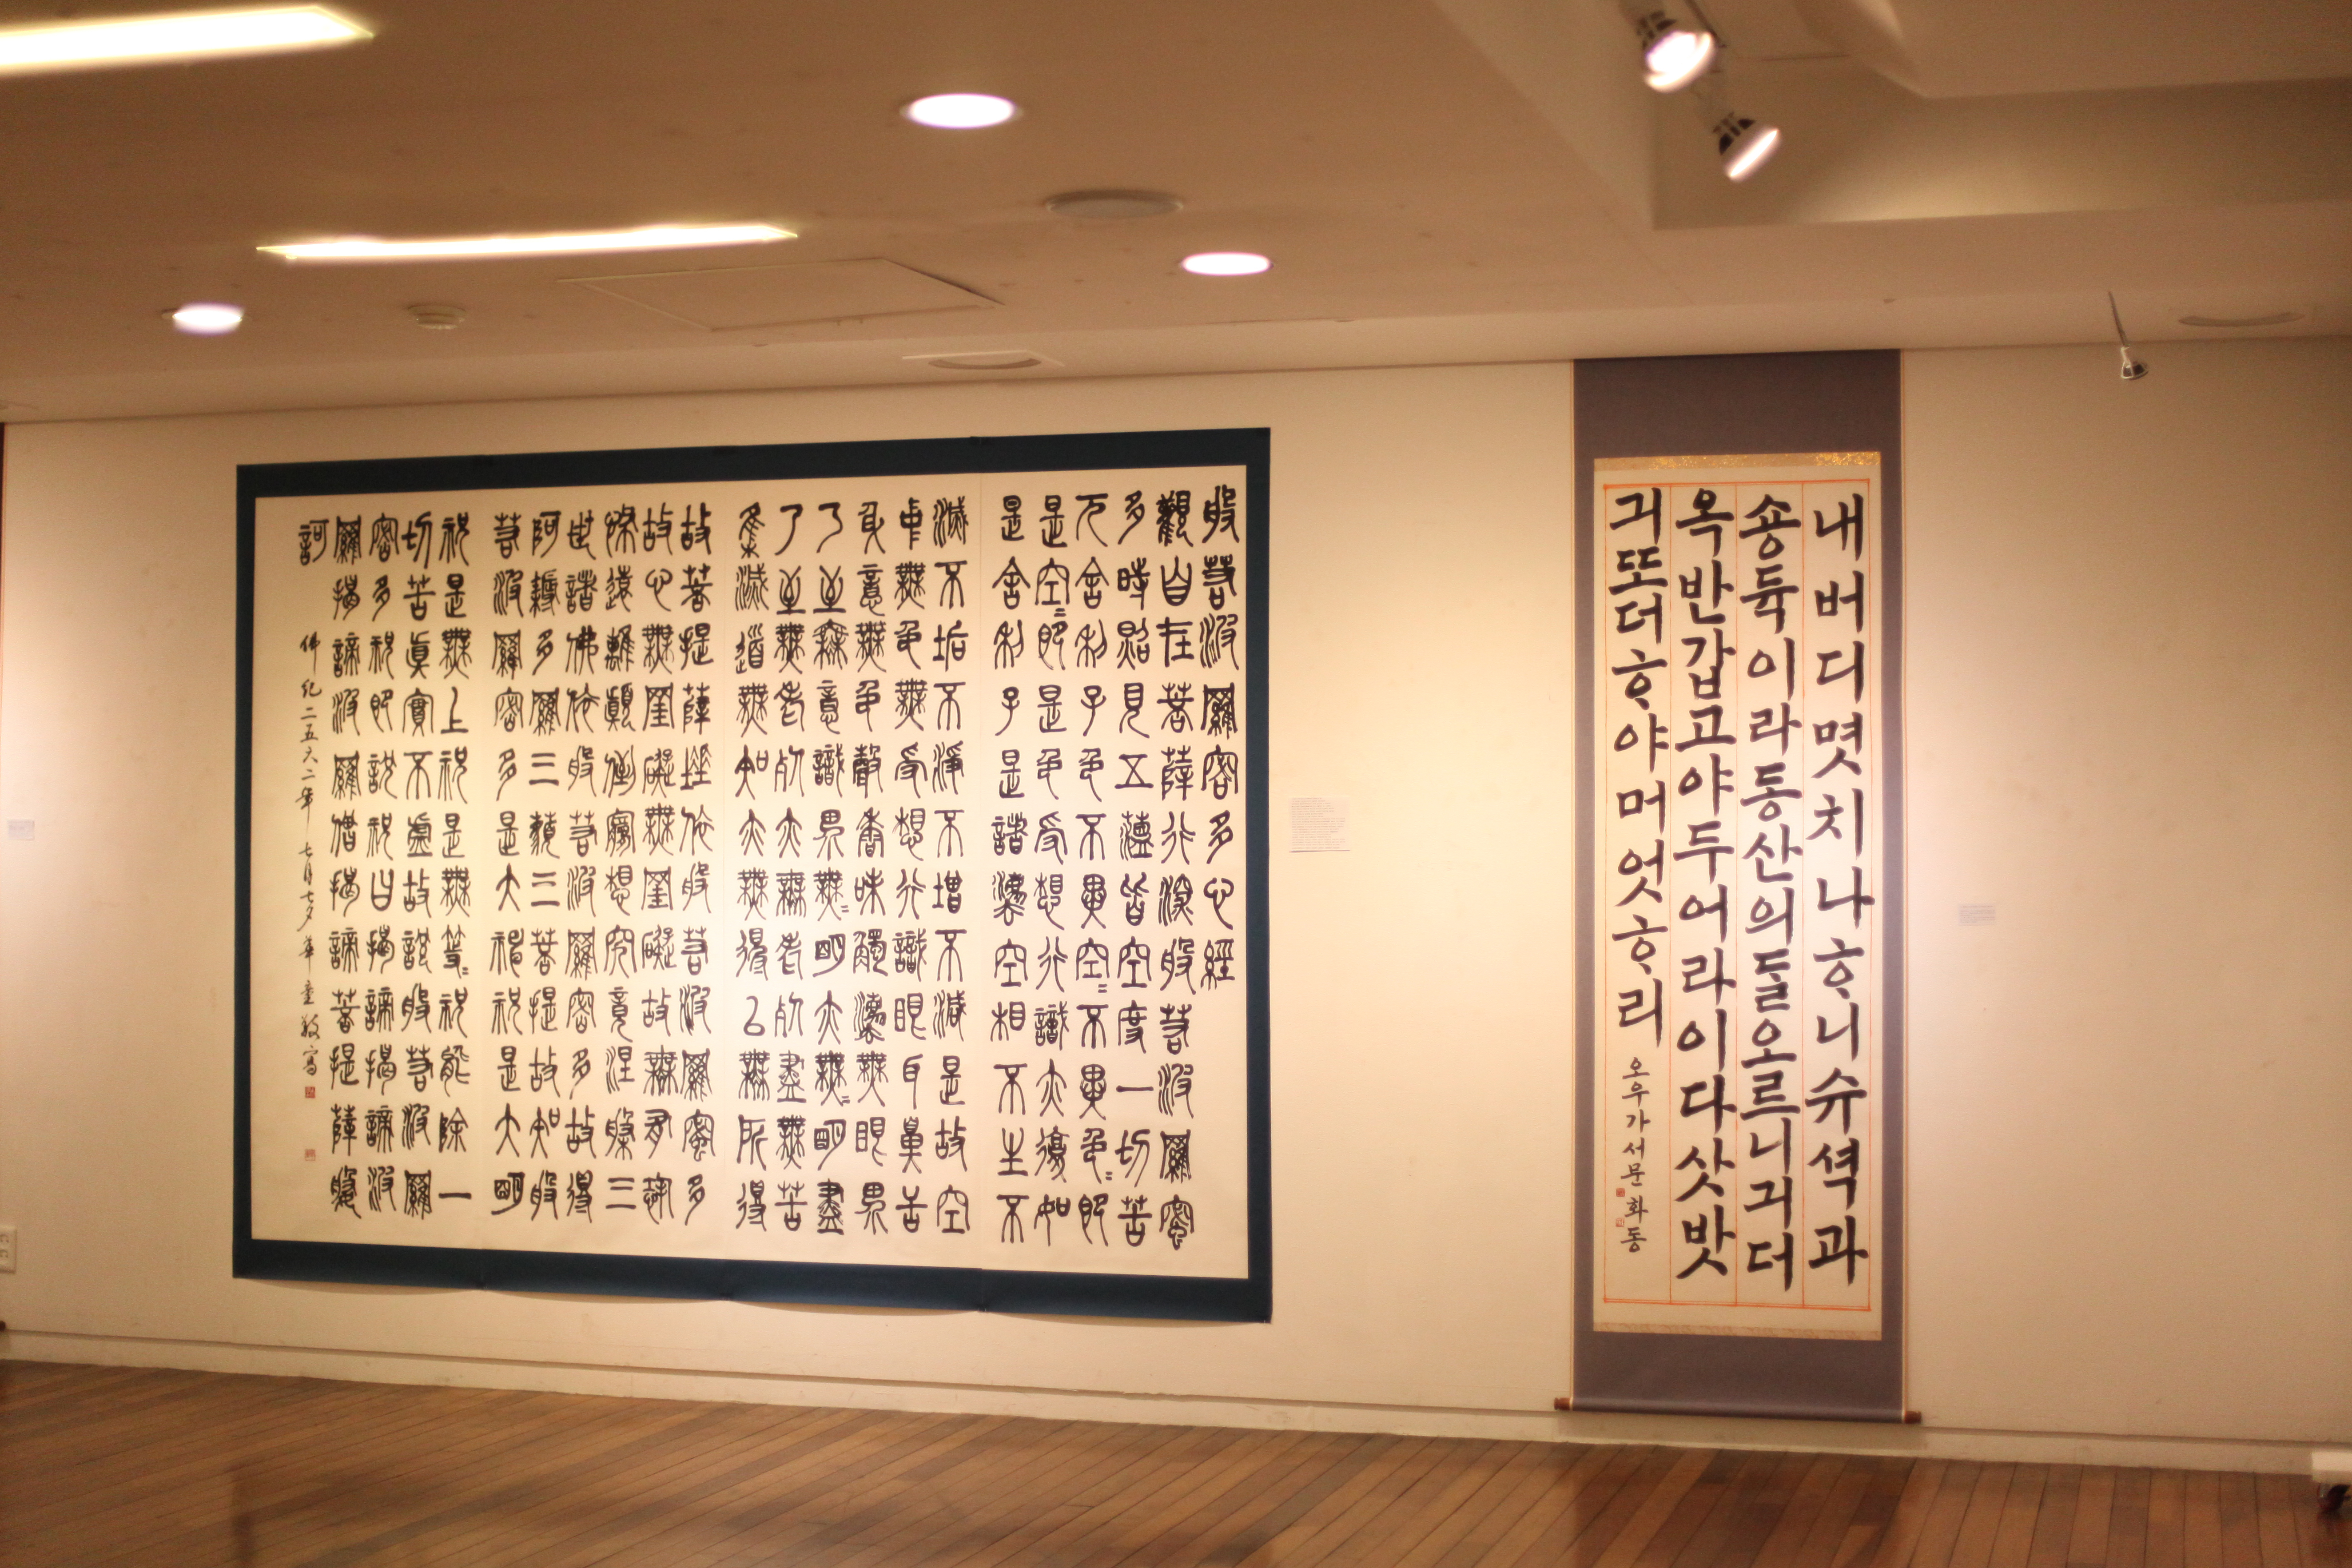 般若波羅密多心經
觀自在菩薩行深般若波羅蜜
多時照見五蘊皆空度一切苦
厄舍利子色不異空〻不異色〻卽
是空〻卽是色受想行識亦復如
是舍利子是諸法空相不生不
滅不垢不淨不增不減是故空
中無色無受想行識眼耳鼻舌
身意無色聲香味觸法無眼界
乃至無意識界無〻明亦無〻明盡
乃至無老死亦無老死盡無苦
集滅道無知亦無得以無所得
故菩提薩埵依般若波羅蜜多
故心無罣礙無罣礙故無有恐
怖遠離顚倒夢想究竟涅槃三
世諸佛依般若波羅密多故得
阿耨多羅三藐三菩提故知般
若波羅密多是大神呪是大明
呪是無上呪是無等〻呪能除一
切苦眞實不虛故說般若波羅
密多呪卽說呪曰揭諦揭諦波
羅揭諦波羅僧揭諦菩提薩婆
訶
佛紀二五六二年 七月七夕 華童敬寫
내버디몃치나ᄒᆞ니슈셕과
숑듁이라동산의ᄃᆞᆯ오르니긔더
옥반갑고야두어라이다삿밧
긔또더ᄒᆞ야머엇ᄒᆞ리
오우가서문 화동